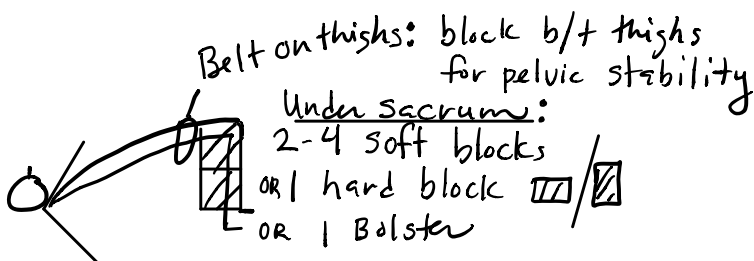 Belt on thighs: block b/t thighs
for pelvic stability
Under sacrum:
2-4 soft blocks
OR 1 hard block /
OR 1 Bolster